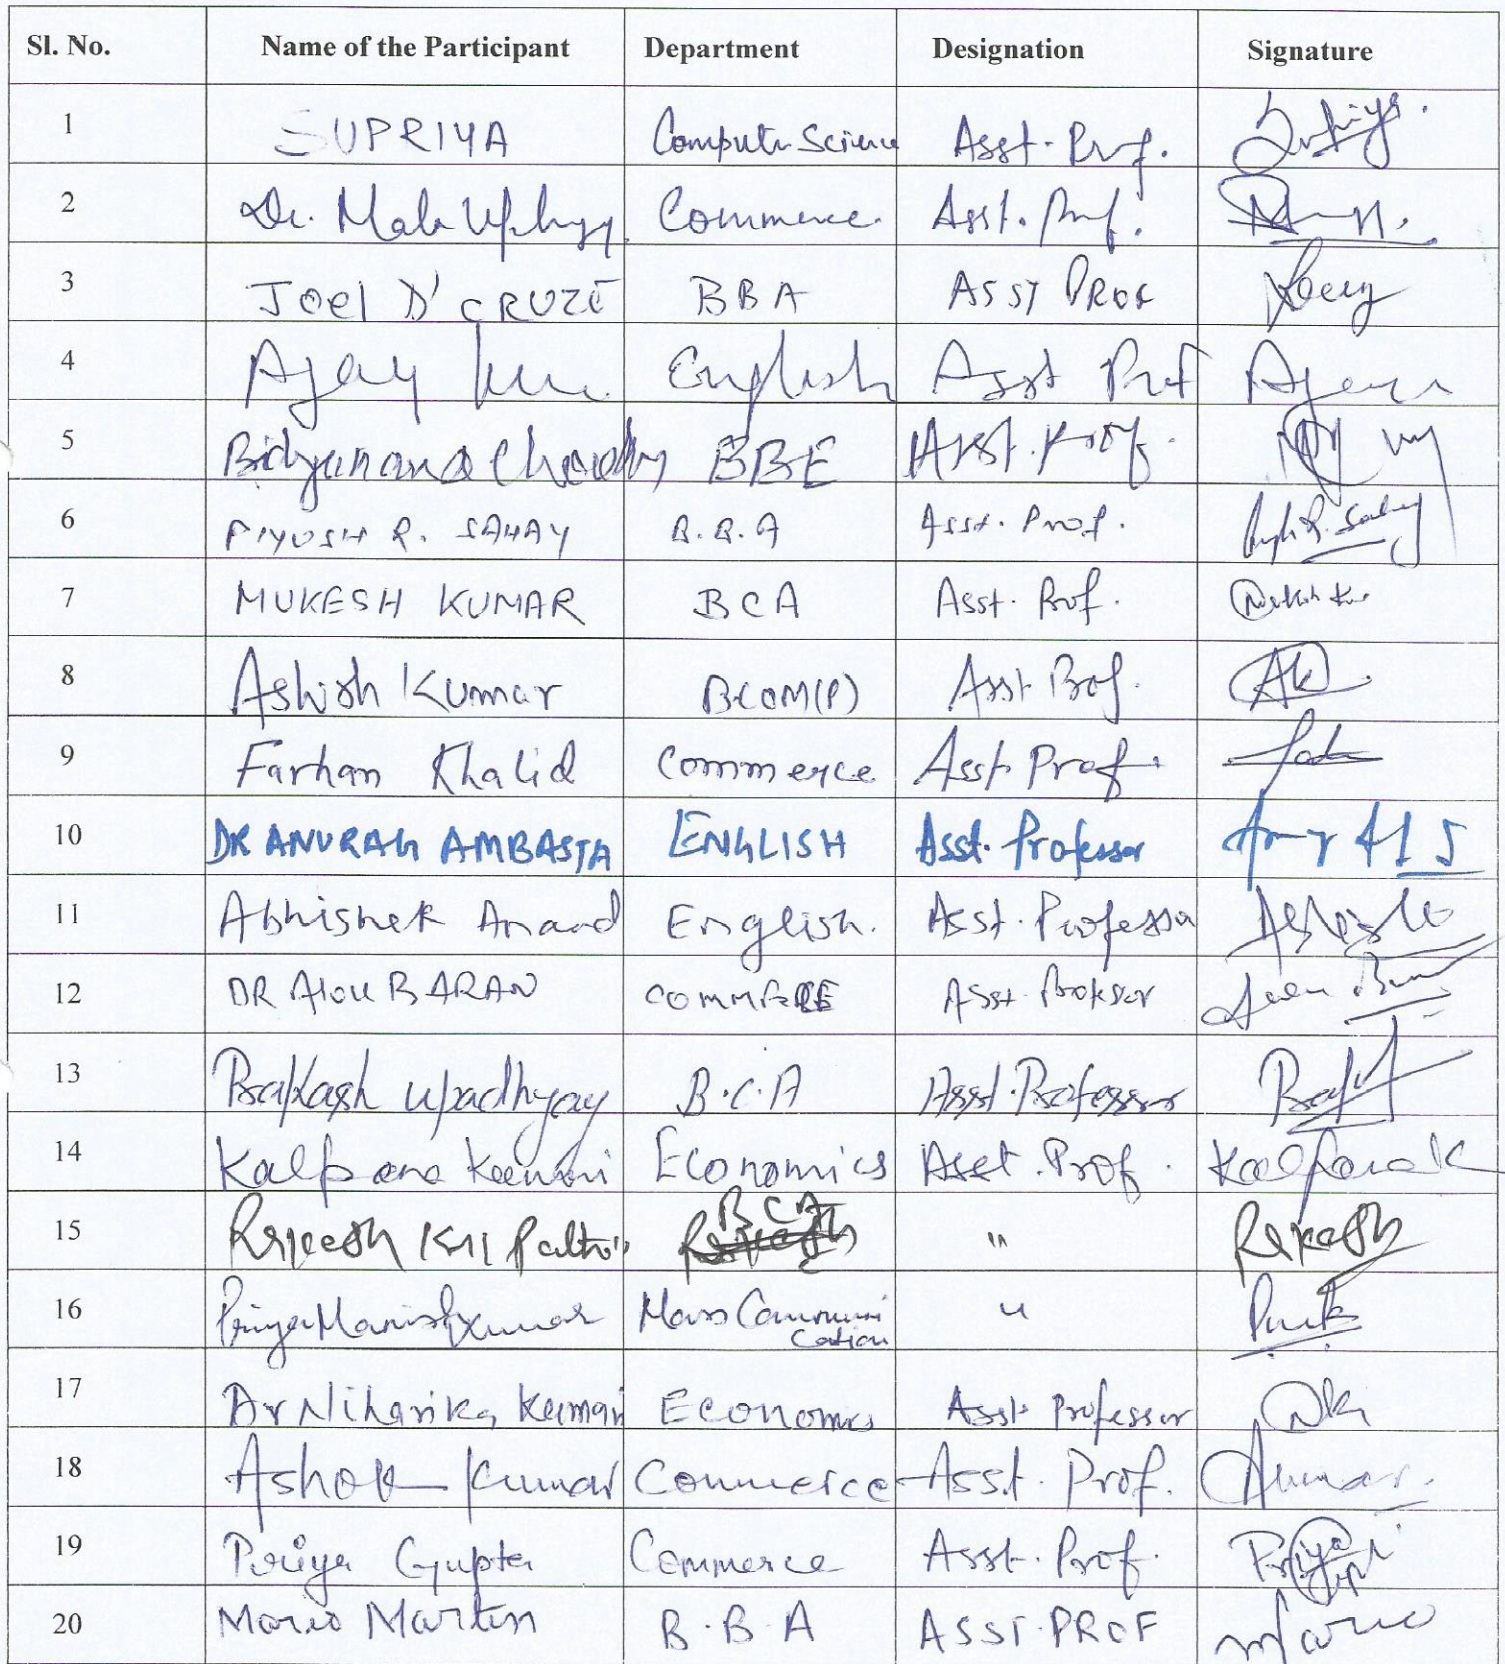 Sl. No. Name of the Participant Department Designation Signature
1 SUPRIYA Computer Science Asst. Prof. Supriya.
2 Dr. Mala Upadhyay Commerce. Asst. Prof.
3 JOEl D'CRUZE BBA ASST PROF
4 Ajay Kumar English Asst Prof Ajay
5 Bidyanand Choudhary BBE Asst. Prof.
6 PIYUSH R. SAHAY B.B.A Asst. Prof.
7 MUKESH KUMAR BCA Asst. Prof.
8 Ashish Kumar BCOM(P) Asst Prof. AK
9 Farhan Khalid Commerce Asst. Prof.
10 DR ANURAG AMBASTA ENGLISH Asst. Professor
11 Abhishek Anand English. Asst. Professor
12 DR BARAN COMMERCE Asst. Professor
13 Prakash Upadhyay B.C.A Asst. Professor
14 Kalpana Kumari Economics Asst. Prof. Kalpana K
15 Rajeesh BCA "
16 Priya Manish Kumar Mass Communi
cation "
17 Dr Niharika Kumari Economics Asst. Professor
18 Ashok Kumar Commerce Asst. Prof. Kumar.
19 Priya Gupta Commerce Asst. Prof. Priya
20 Mario Martin B.B.A ASST. PROF Mario